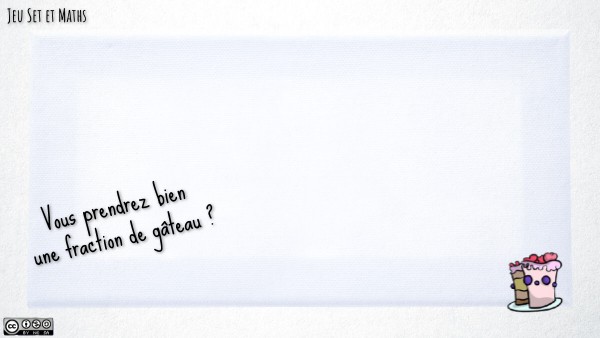 Jeu Set et Maths
Vous prendrez bien
une fraction de gâteau ?
CC
BY NC SA